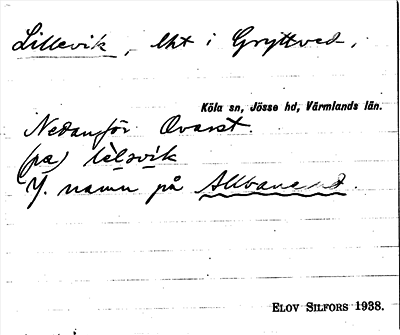 Lillevik, lht i Gryttved,
Köla sn, Jösse hd, Värmlands län.
Nedanför Ovarst.
(på) lèlsvik
Y. namn på
ELOV SILFORS 1938.